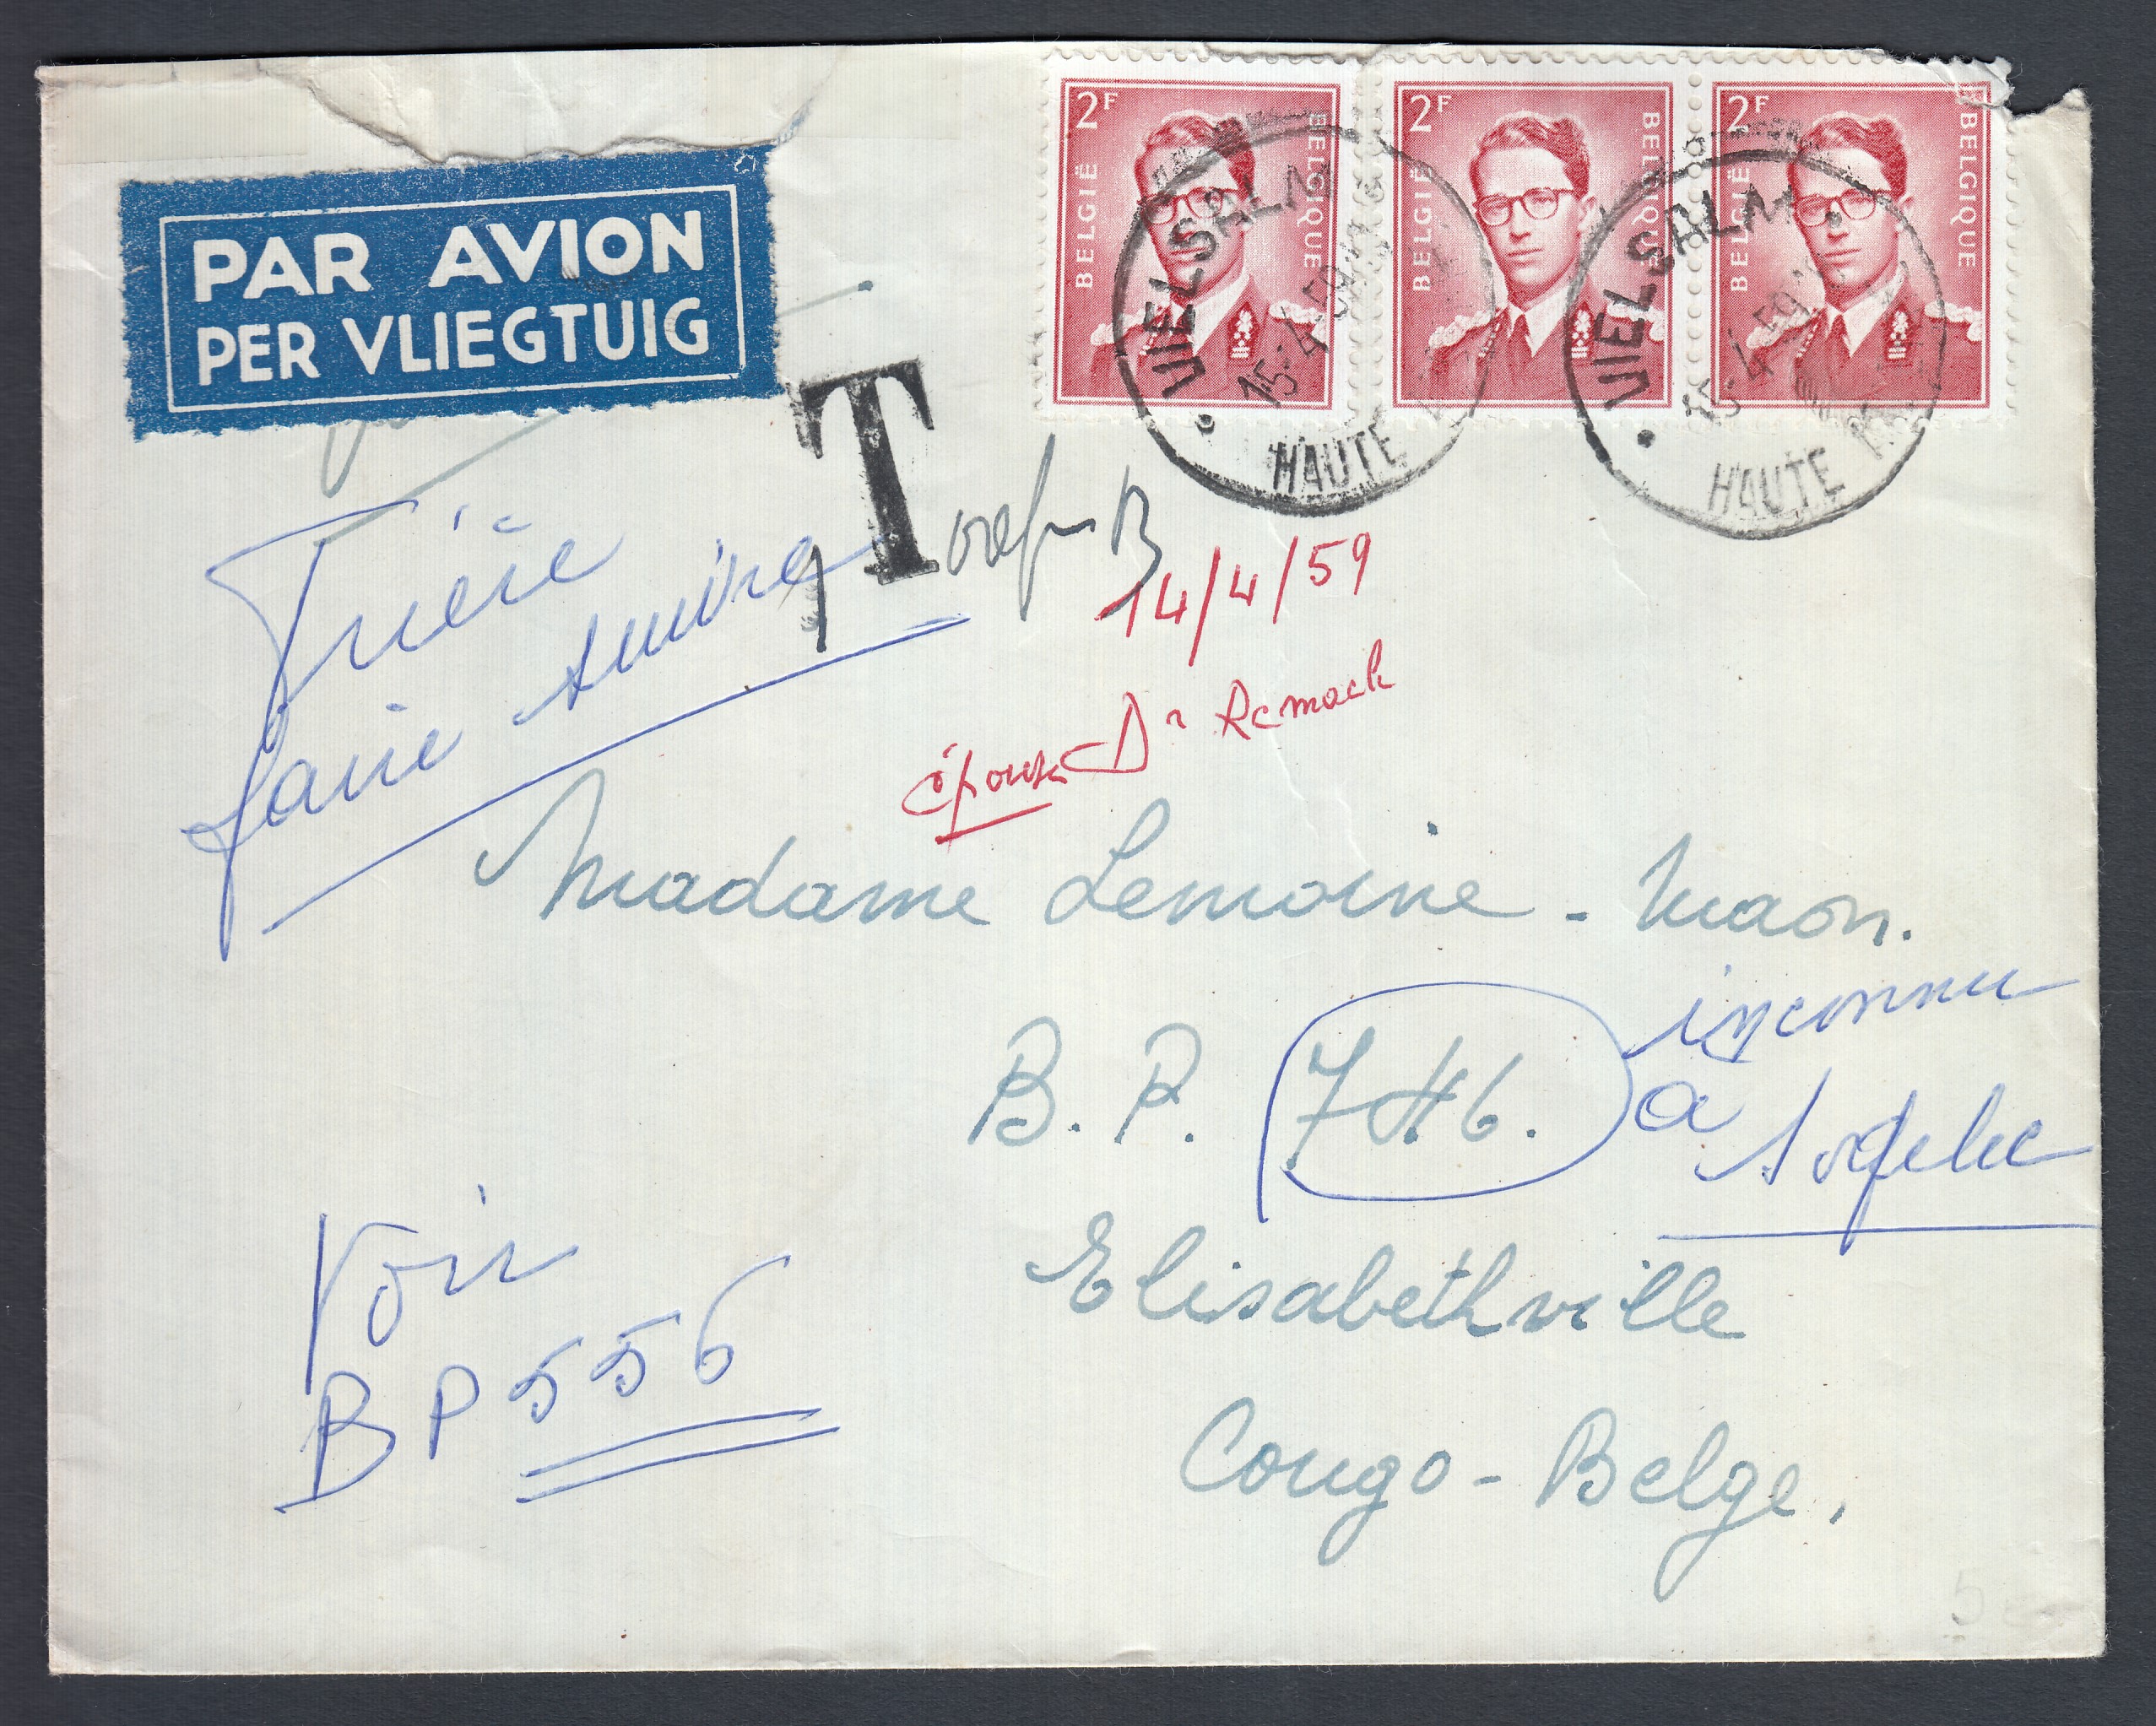 2F BELGIË BELGIQUE
2F BELGIË BELGIQUE
2F BELGIË BELGIQUE
VIELSALM
15-4-59
HAUTE
VIELSALM
15-4-59
HAUTE
PAR AVION
PER VLIEGTUIG
T
Prière
faire suivre
14/4/59
épouse Dr Remack
Madame Lemoine - Maon.
inconnu
B. P. 746.
à
Elisabethville
Congo - Belge.
Voir
BP 556